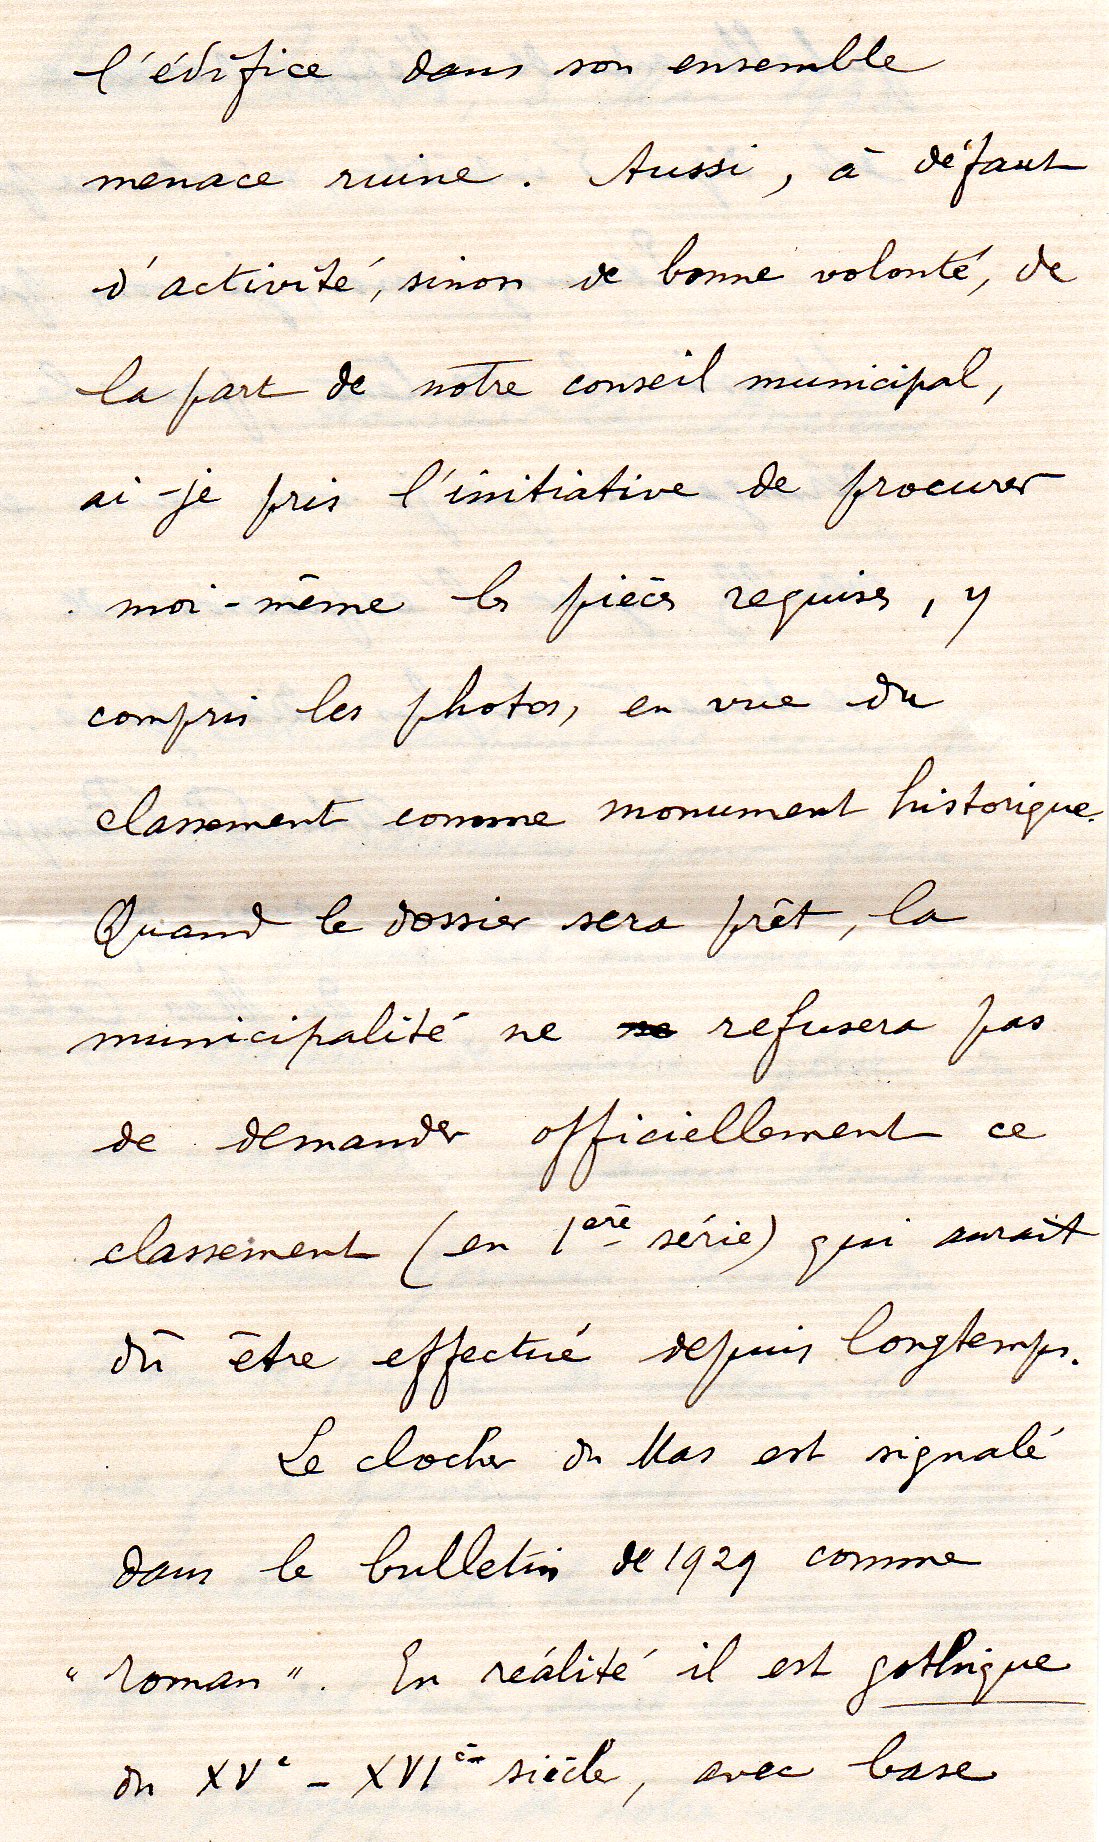 l'édifice dans son ensemble
menace ruine. Aussi, à défaut
d'activité, sinon de bonne volonté, de
la part de notre conseil municipal,
ai-je pris l'initiative de procurer
moi-même les pièces requises, y
compris les photos, en vue du
classement comme monument historique.
Quand le dossier sera prêt, la
municipalité ne refusera pas
de demander officiellement ce
classement (en 1ère série) qui aurait
dû être effectué depuis longtemps.
Le clocher du Mas est signalé
dans le bulletin de 1929 comme
"roman". En réalité il est gothique
du XVe - XVIe siècle, avec base